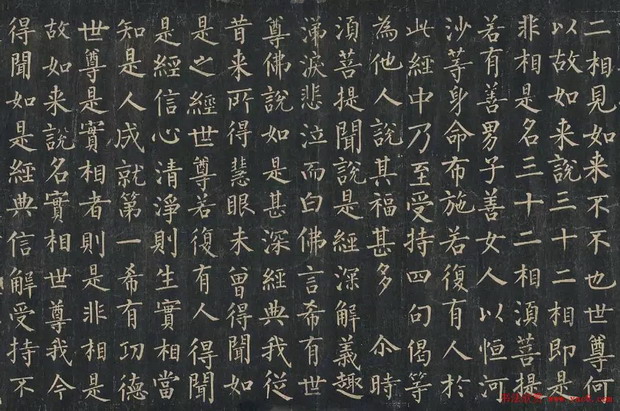 二相見如来不不也世尊何
以故如来說三十二相即是
非相是名三十二相湏菩提
若有善男子善女人以恒河
沙等身命布施若復有人於
此經中乃至受持四句偈等
為他人說其福甚多 尒時
湏菩提聞說是經深解義趣
涕淚悲泣而白佛言希有世
尊佛說如是甚深經典我従
昔来所得慧眼未曾得聞如
是之經世尊若復有人得聞
是經信心清淨則生實相當
知是人成就第一希有功德
世尊是實相者則是非相是
故如来說名實相世尊我今
得聞如是經典信解受持不